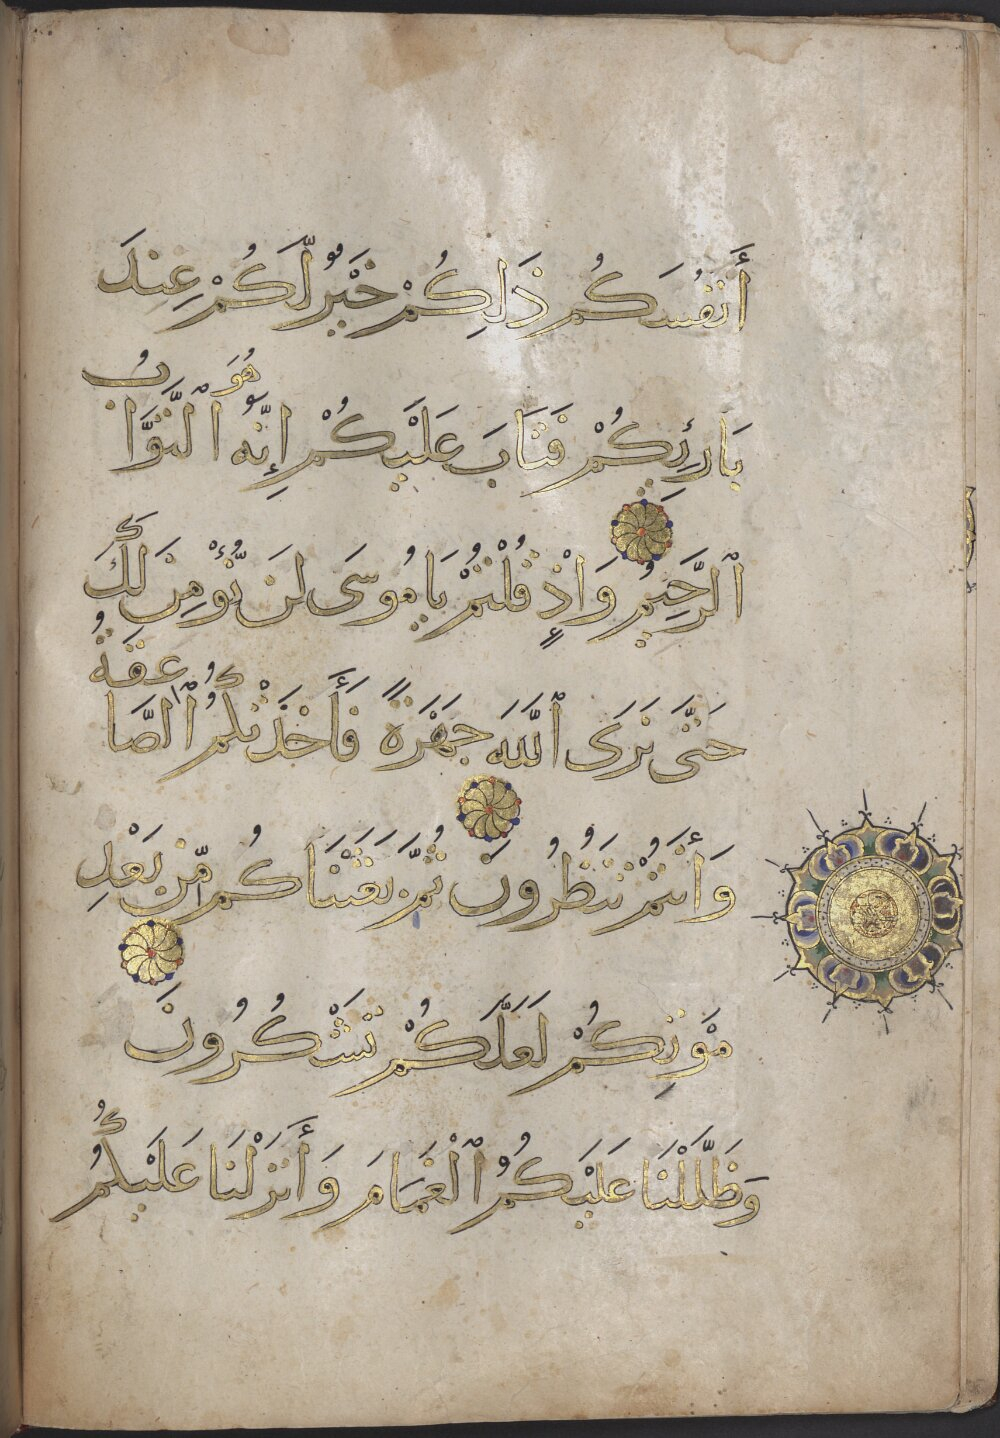 أَنفُسَكُمْ ذَلِكُمْ خَيْرٌ لَّكُمْ عِندَ
بَارِئِكُمْ فَتَابَ عَلَيْكُمْ إِنَّهُ هُوَ ٱلتَّوَّابُ
ٱلرَّحِيمُ وَإِذْ قُلْتُمْ يَامُوسَى لَن نُّؤْمِنَ لَكَ
حَتَّى نَرَى ٱللَّهَ جَهْرَةً فَأَخَذَتْكُمُ ٱلصَّاعِقَةُ
وَأَنتُمْ تَنظُرُونَ ثُمَّ بَعَثْنَاكُم مِّن بَعْدِ
مَوْتِكُمْ لَعَلَّكُمْ تَشْكُرُونَ
وَظَلَّلْنَا عَلَيْكُمُ ٱلْغَمَامَ وَأَنزَلْنَا عَلَيْكُمُ